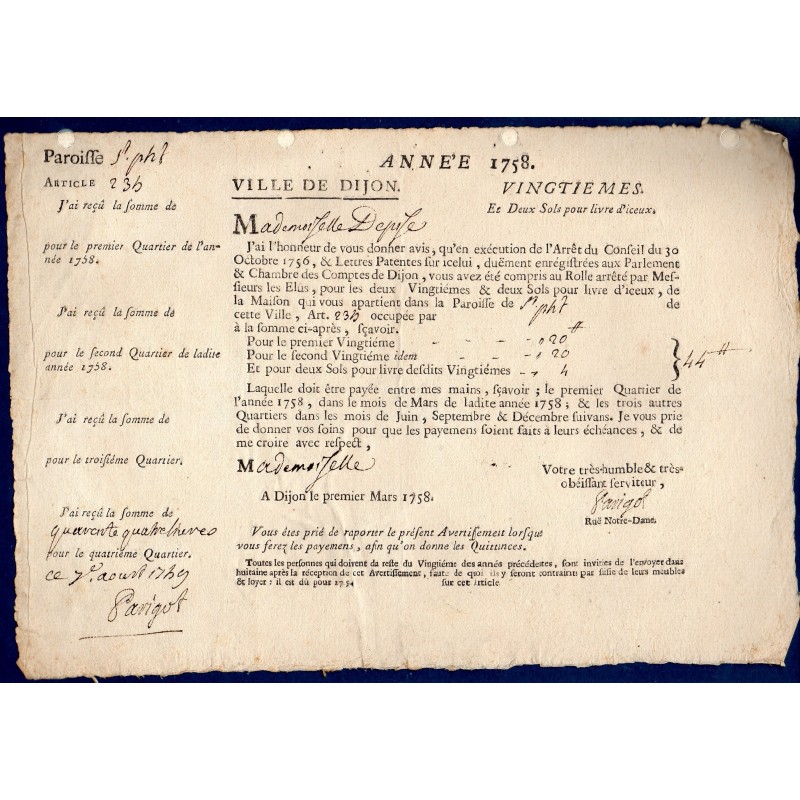 Paroisse St. pht
ANNÉE 1758.
ARTICLE 236
VILLE DE DIJON.
VINGTIEMES.
Et Deux Sols pour livre d'iceux.
J'ai reçû la somme de
pour le premier Quartier de l'an-
née 1758.
J'ai reçû la somme de
pour le second Quartier de ladite
année 1758.
J'ai reçû la somme de
pour le troisiéme Quartier.
J'ai reçû la somme de
quarente quatre livres
pour le quatriéme Quartier.
ce aoust 1759
Parigot
Mademoiselle
J'ai l'honneur de vous donner avis, qu'en exécution de l'Arrêt du Conseil du 30
Octobre 1756, & Lettres Patentes sur icelui, duëment enrégistrées aux Parlement
& Chambre des Comptes de Dijon, vous avez été compris au Rolle arrêté par Mes-
sieurs les Elûs, pour les deux Vingtiémes & deux Sols pour livre d'iceux, de
la Maison qui vous apartient dans la Paroisse de St. pht de
cette Ville, Art. 236 occupée par
à la somme ci-après, sçavoir.
Pour le premier Vingtiéme - - - 20 ₶
Pour le second Vingtiéme idem - - - 20
Et pour deux Sols pour livre desdits Vingtiémes - 4
} 44 ₶
Laquelle doit être payée entre mes mains, sçavoir ; le premier Quartier de
l'année 1758, dans le mois de Mars de ladite année 1758 ; & les trois autres
Quartiers dans les mois de Juin, Septembre & Décembre suivans. Je vous prie
de donner vos soins pour que les payemens soient faits à leurs échéances, & de
me croire avec respect,
Mademoiselle
Votre très-humble & très-
obéissant serviteur,
Parigot
Ruë Notre-Dame.
A Dijon le premier Mars 1758.
Vous êtes prié de raporter le présent Avertissement lorsque
vous ferez les payemens, afin qu'on donne les Quittances.
Toutes les personnes qui doivent du reste du Vingtiéme des années précédentes, sont invitées de l'envoyer dans
huitaine après la réception de cet Avertissement, faute de quoi ils y seront contraints par saisie de leurs meubles
& loyer : il est dû pour 175 sur cet Article